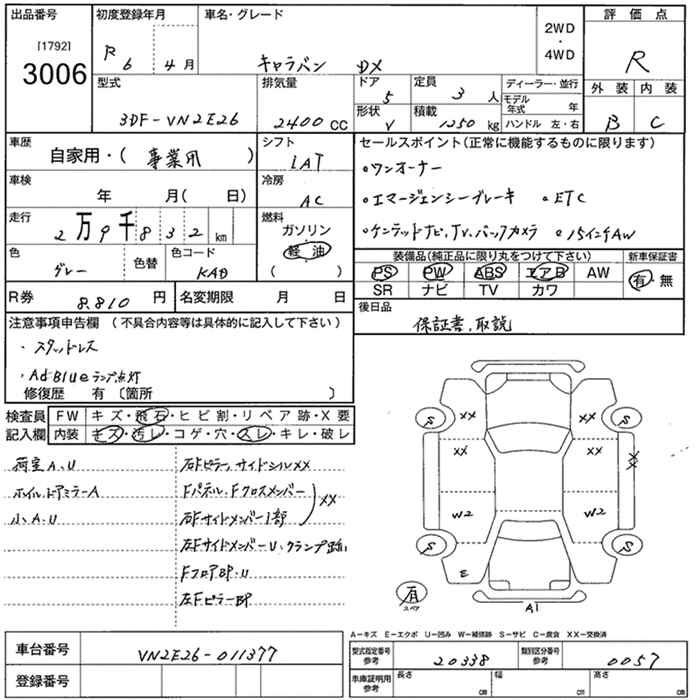 出品番号
[1792]
3006
初度登録年月
R 6 年 4 月
車名・グレード
キャラバン DX
2WD
・
4WD
評価点
R
外装 内装
B C
型式
3DF-VN2E26
排気量
2400 CC
ドア 5
形状 V
定員 3 人
積載 1250 kg
ディーラー・並行
モデル年式 年
ハンドル 左・右
車歴
自家用・( 事業用 )
シフト
IAT
車検
年 月( 日)
冷房
AC
走行
2万9千832 km
燃料
ガソリン
軽油
( )
色
グレー
色替
色コード
KAD
R券 8.810 円
名変期限 月 日
セールスポイント(正常に機能するものに限ります)
・ワンオーナー
・エマージェンシーブレーキ ・ETC
・ケンテッドナビ,TV,バックカメラ ・15インチAW
装備品(純正品に限り丸をつけて下さい)
PS PW ABS エアB AW
SR ナビ TV カワ
新車保証書
有・無
後日品
保証書,取説
注意事項申告欄 (不具合内容等は具体的に記入して下さい)
・スタッドレス
・AdBlueランプ点灯
修復歴 有〔箇所 〕
検査員記入欄
FW キズ・飛石・ヒビ割・リペア跡・X要
内装 キズ・汚レ・コゲ・穴・スレ・キレ・破レ
荷室A、U
ホイル、ドアミラーA
小、A、U
右Fピラー,サイドシルXX
Fパネル、Fクロスメンバー
右Fサイドメンバー1部
XX
左Fサイドメンバーu、クランプ跡
FフロアBP、U
左FピラーBP
XX XX
S S
XX XX XX
W2 W2
S S
E
有
スペア
A1
A-キズ E-エクボ U-凹み W-補修跡 S-サビ C-腐食 XX-交換済
車台番号
VN2E26-011377
登録番号
型式指定番号
参考
20338
類別区分番号
参考
0057
車庫証明用
参考
長さ cm
幅 cm
高さ cm